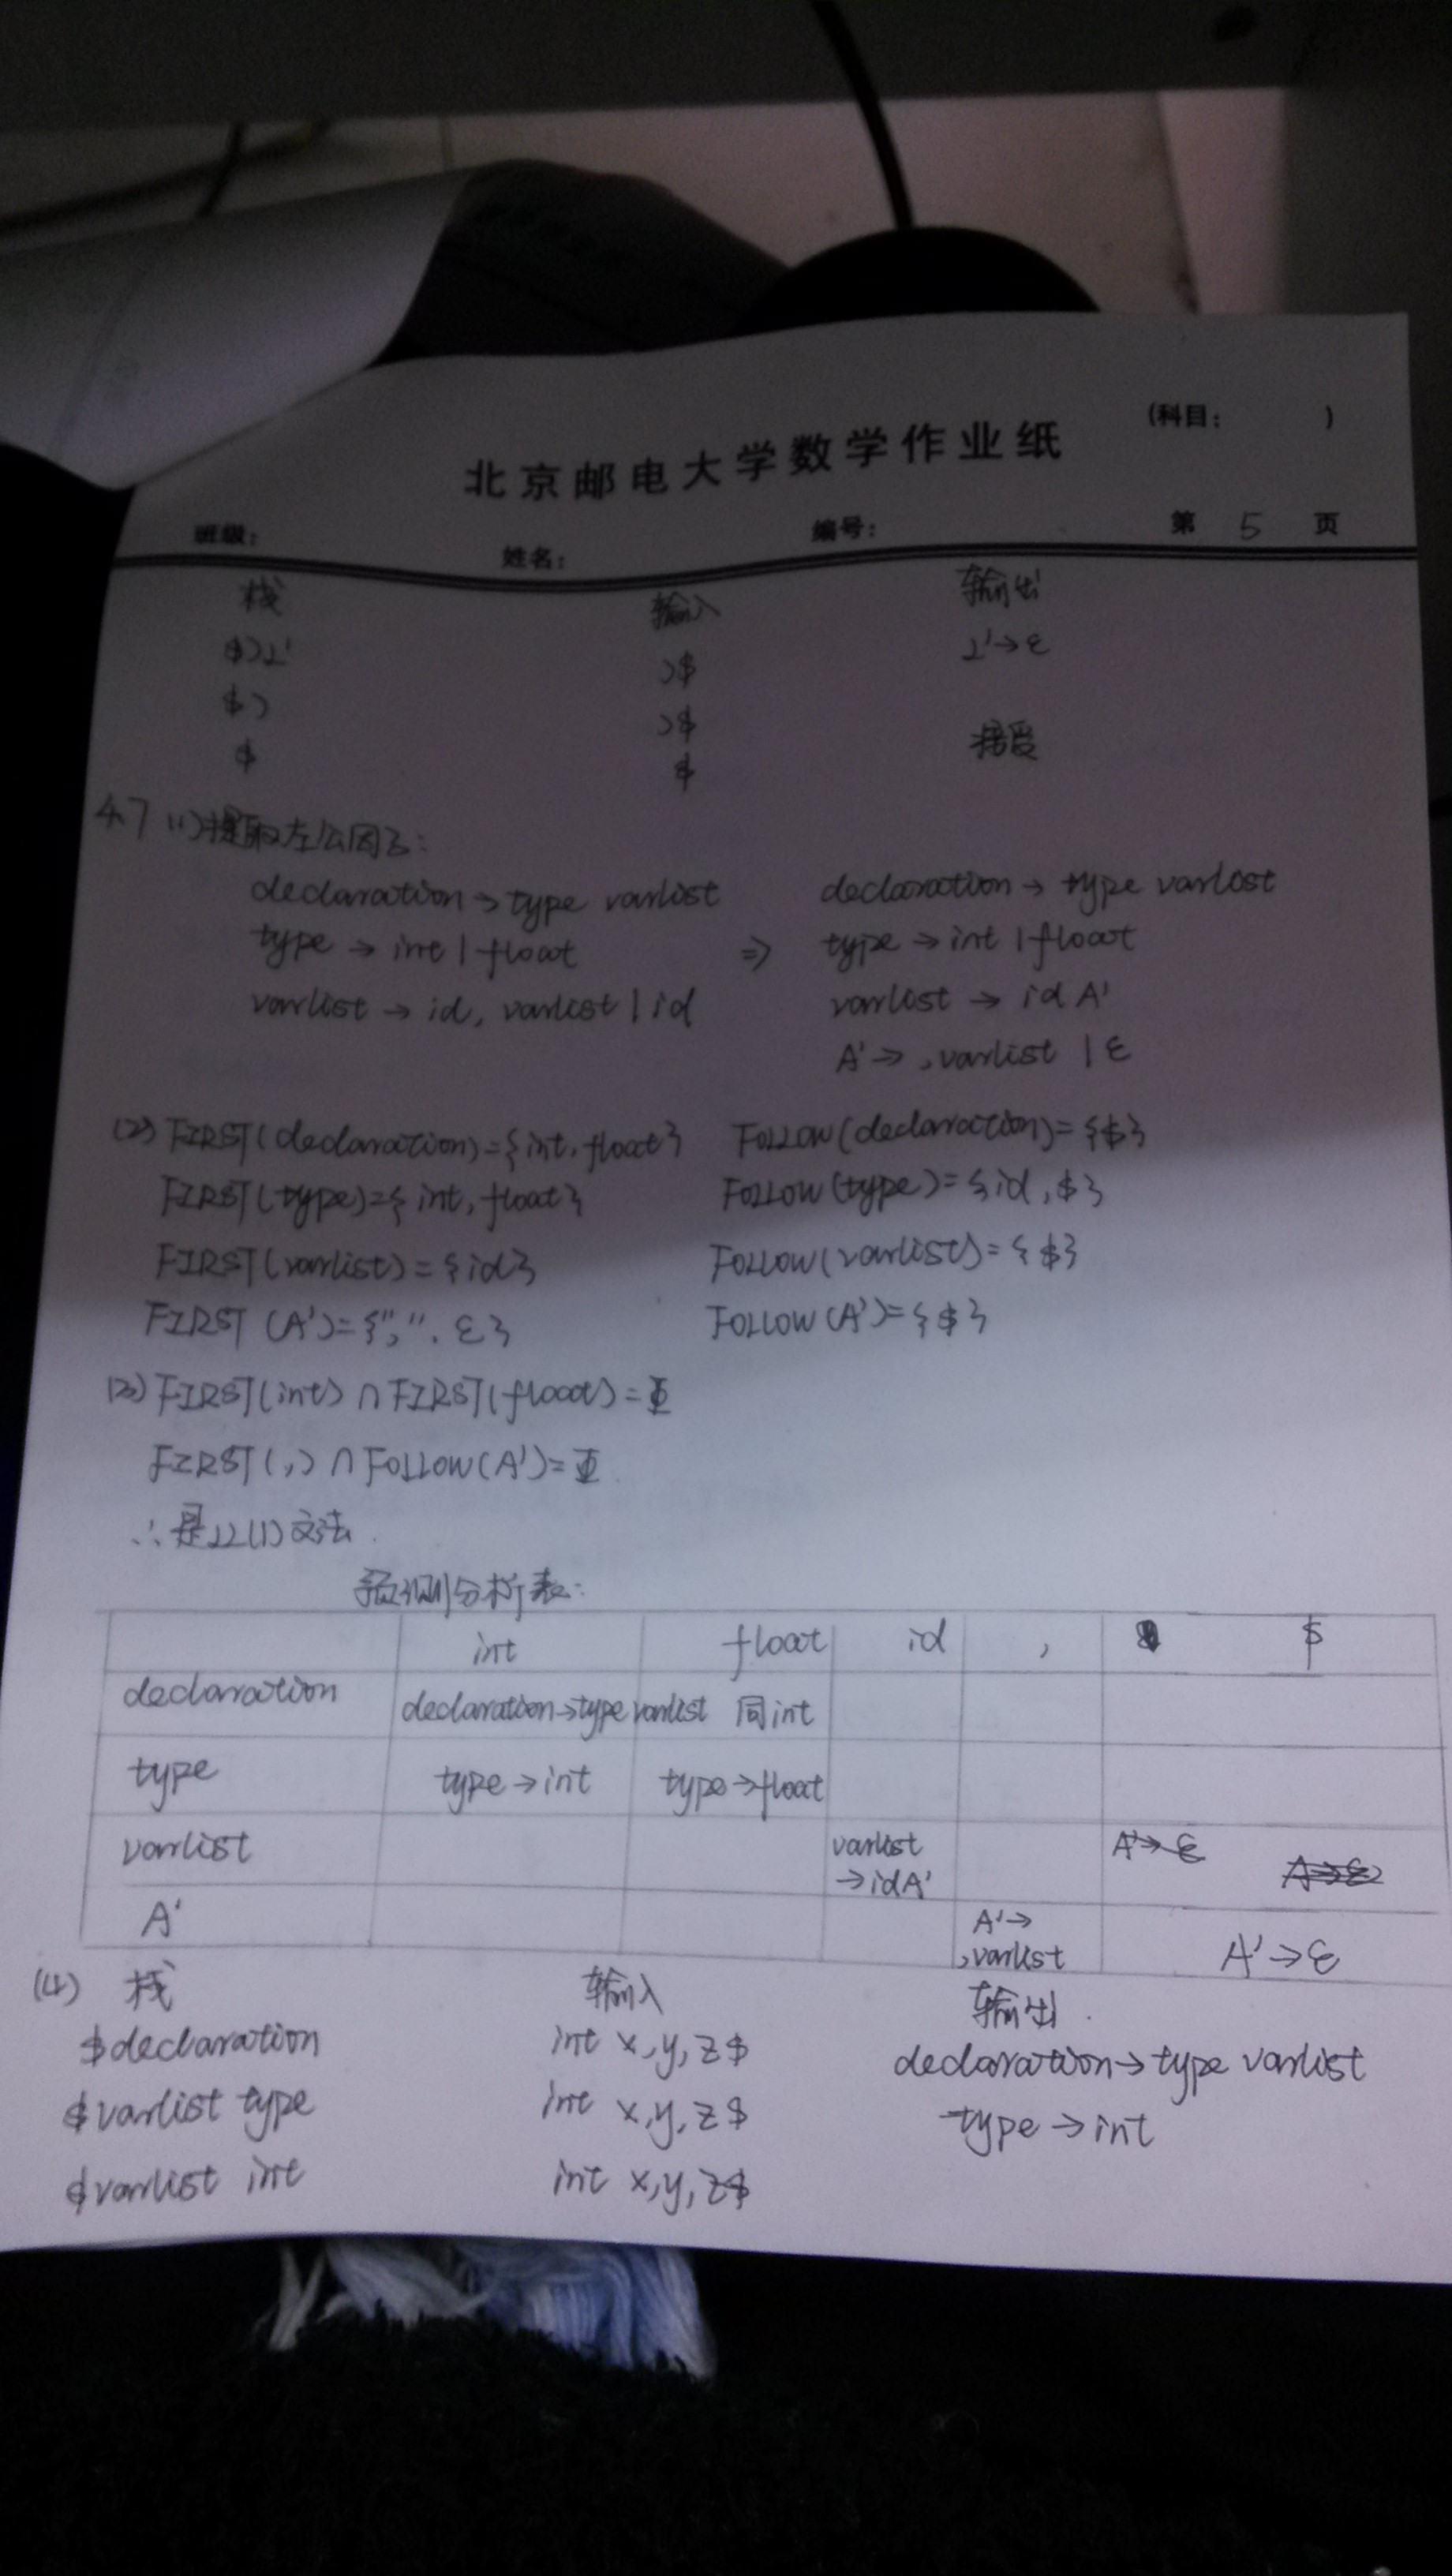 (科目: )
北京邮电大学数学作业纸
班级: 姓名: 编号: 第 5 页
栈 输入 输出
$)L' )$ L'→ε
$) )$
$ $ 接受
4.7 (1)提取左公因子:
declaration→type varlist declaration→type varlist
type→int|float ⇒ type→int|float
varlist→id, varlist|id varlist→idA'
A'→,varlist|ε
(2) FIRST(declaration)={int,float} FOLLOW(declaration)={$}
FIRST(type)={int,float} FOLLOW(type)={id,$}
FIRST(varlist)={id} FOLLOW(varlist)={$}
FIRST(A')={",".ε} FOLLOW(A')={$}
(3) FIRST(int)∩FIRST(float)=Φ
FIRST(,)∩FOLLOW(A')=Φ
∴是LL(1)文法.
预测分析表:
int float id , $
declaration declaration→type varlist 同int
type type→int type→float
varlist varlist→idA' A'→ε A'→ε
A' A'→,varlist A'→ε
(4) 栈 输入 输出.
$declaration int x,y,z$ declaration→type varlist
$varlist type int x,y,z$ type→int
$varlist int int x,y,z$